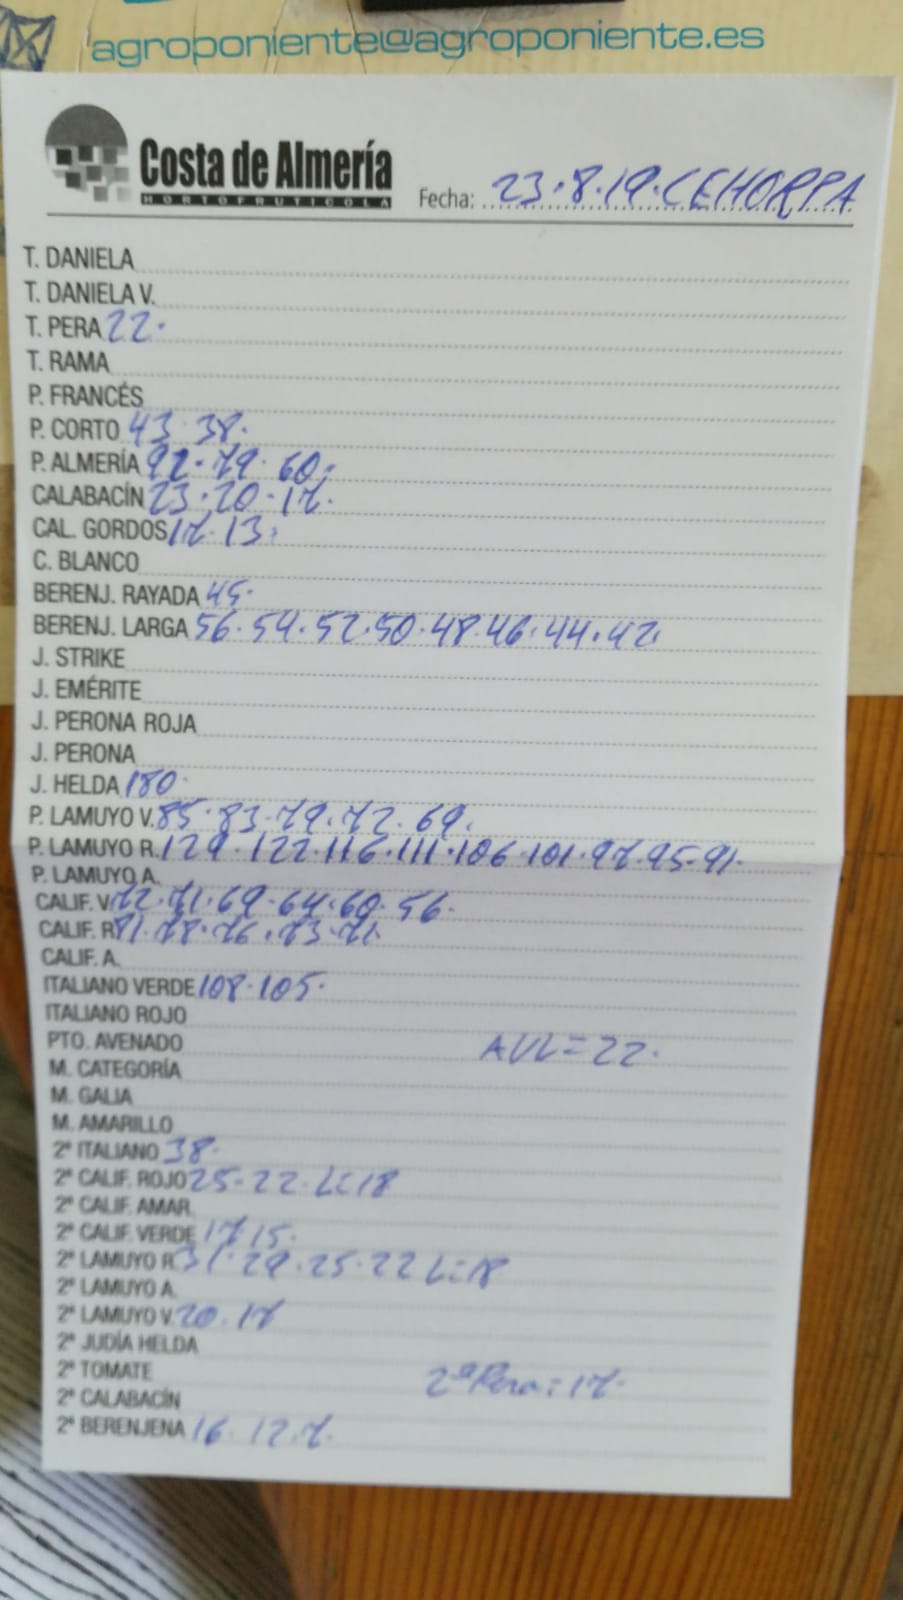 agroponiente@agroponiente.es
Costa de Almería
HORTOFRUTICOLA
Fecha: 23.8.19.CEHORPA
T. DANIELA
T. DANIELA V.
T. PERA 22.
T. RAMA
P. FRANCÉS
P. CORTO 43.38.
P. ALMERÍA 92.79.60.
CALABACÍN 23.20.17.
CAL. GORDOS 17.13.
C. BLANCO
BERENJ. RAYADA 45.
BERENJ. LARGA 56.54.52.50.48.46.44.42.
J. STRIKE
J. EMÉRITE
J. PERONA ROJA
J. PERONA
J. HELDA 180.
P. LAMUYO V. 85.83.79.72.69.
P. LAMUYO R. 129.122.116.111.106.101.97.95.91.
P. LAMUYO A.
CALIF. V. 72.71.69.64.60.56.
CALIF. R. 81.78.76.73.71.
CALIF. A.
ITALIANO VERDE 108.105.
ITALIANO ROJO
PTO. AVENADO AVL=22.
M. CATEGORÍA
M. GALIA
M. AMARILLO
2ª ITALIANO 38.
2ª CALIF. ROJO 25.22.L=18
2ª CALIF. AMAR.
2ª CALIF. VERDE 17.15.
2ª LAMUYO R. 31.29.25.22 L=18
2ª LAMUYO A.
2ª LAMUYO V. 20.17
2ª JUDÍA HELDA
2ª TOMATE 2ª Pera=17.
2ª CALABACÍN
2ª BERENJENA 16.12.7.